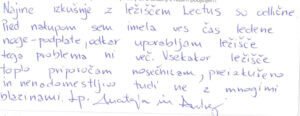 Najine izkušnje z ležiščem Lectus so odlične.
Pred nakupom sem imela ves čas ledene
noge - podplate, odkar uporabljam ležišče
tega problema ni več. Vsekakor ležišče
toplo priporočam nosečnicam, preizkušeno
in nenadomestljivo tudi ne z mnogimi
blazinami. Lp. Mateja in Andrej